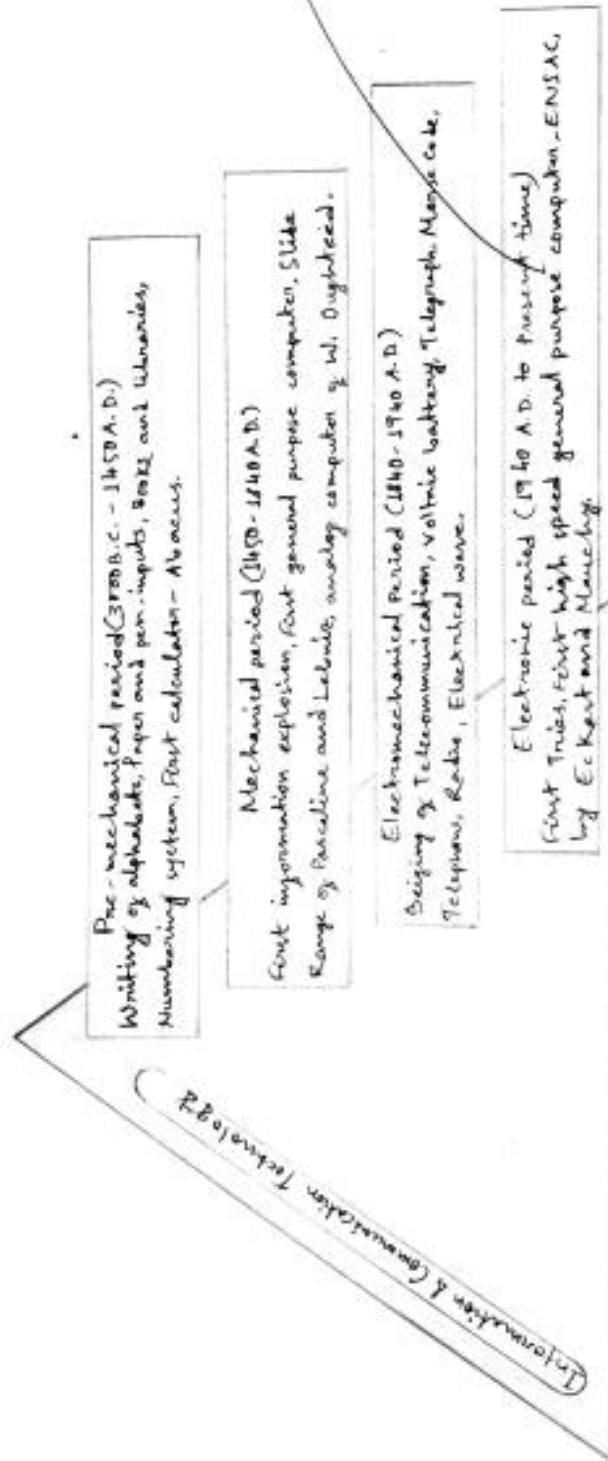 Information & Communication Technology
Pre-mechanical period (3000 B.C. - 1450 A.D.)
Writing of alphabets, Paper and pen-inputs, Books and libraries,
Numbering system, First calculator - Abacus.
Mechanical period (1450-1840 A.D.)
First information explosion, First general purpose computer, Slide
Range of Pascaline and Leibniz, analog computer of W. Oughtread.
Electromechanical Period (1840-1940 A.D.)
of Telecommunication, voltaic battery, Telegraph Morse code,
Telephone, Radio, Electrical wave.
Electronic period (1940 A.D. to Present time)
First Tries, First high speed general purpose computer - ENSAC,
by Eckart and Mauchy.